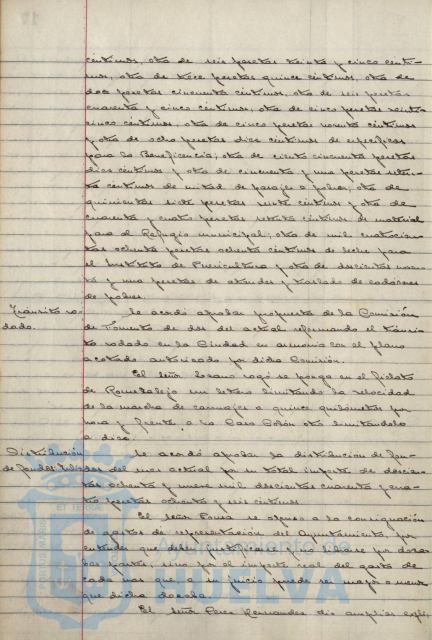 céntimos, otra de seis pesetas treinta y cinco cénti-
mos, otra de trece pesetas quince céntimos, otra de
dos pesetas cincuenta céntimos, otra de seis pesetas
cuarenta y cinco céntimos, otra de cinco pesetas veinti-
cinco céntimos, otra de cinco pesetas noventa céntimos
y otra de ocho pesetas diez céntimos de específicos
para la Beneficencia; otra de ciento cincuenta pesetas
diez céntimos y otra de cincuenta y una pesetas seten-
ta céntimos de mitad de pasajes a pobres; otra de
quinientas siete pesetas veinte céntimos y otra de
cuarenta y cuatro pesetas setenta céntimos de material
para el Refugio municipal; otra de mil cuatrocien-
tas ochenta pesetas ochenta céntimos de leche para
el Instituto de Puericultura y otra de doscientas noven-
ta y una pesetas de ataudes y traslado de cadáveres
de pobres.
Tránsito ro-
dado.
Se acordó aprobar propuesta de la Comisión
de Fomento de dos del actual reformando el tránsi-
to rodado en la Ciudad en armonía con el plano
acotado autorizado por dicha Comisión.
El señor Lozano rogó se ponga en el
de un letrero limitando la velocidad
de la marcha de carruajes a quince quilómetros por
hora y frente a la Casa Colón otro limitándola
a diez.
Distribución
de fondos
Se acordó aprobar la distribución de fon-
dos del mes actual por su total importe de doscien-
tas ochenta y nueve mil doscientas cuarenta y cua-
tro pesetas ochenta y seis céntimos
El señor Ponce se opuso a la consignación
de gastos de representación del Ayuntamiento, por
entender que deben justificarse y no librarse por doza-
bas partes, sino por el importe real del gasto de
cada mes que, a su juicio puede ser mayor o menor
que dicha dozaba.
El señor Perez Hernandez dió amplias expli-
HUELVA